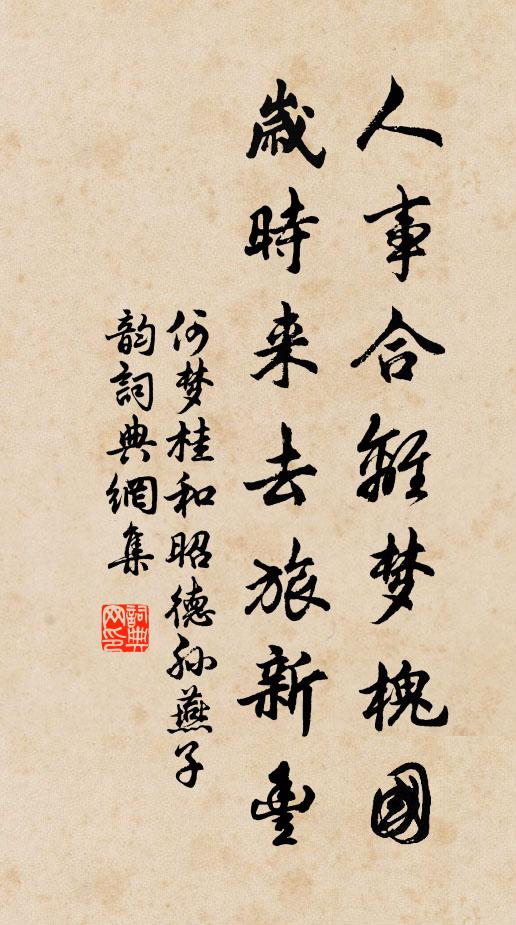 人事合離梦槐國
歲時来去旅新豊
何梦桂和昭德孙燕子
韵詞典網集
詞典网印